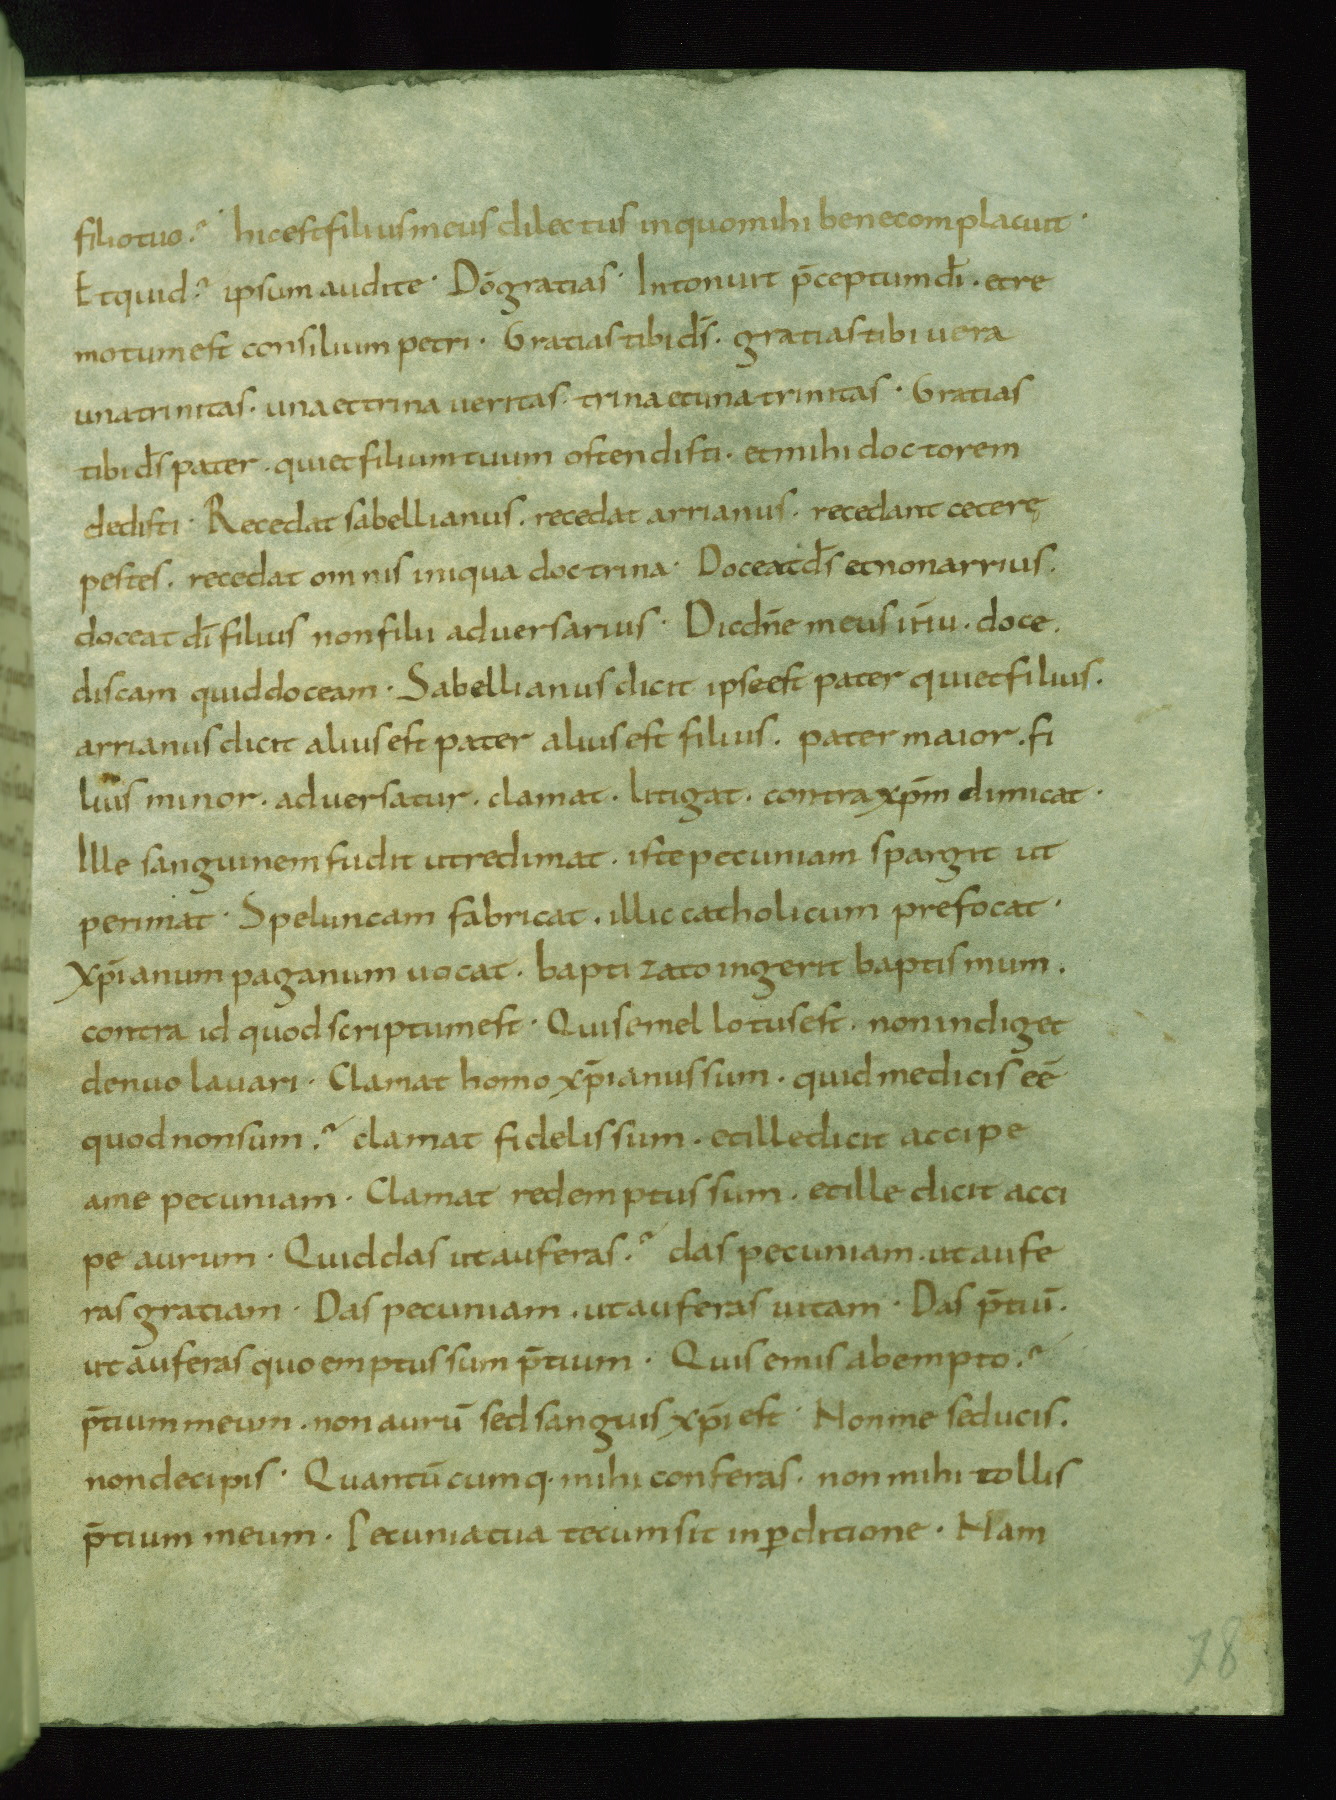 filio tuo? hic est filius meus dilectus in quo mihi bene complacuit ·
Et quid? ipsum audite · Dō gratias · Intonuit p̄ceptum dī · et re
motum est consilium petri · Gratias tibi ds̄ · gratias tibi vera
una trinitas · una et trina veritas · trina et una trinitas · Gratias
tibi ds̄ pater · qui et filium tuum ostendisti · et mihi doctorem
dedisti · Recedat sabellianus · recedat arrianus · recedant ceterę
pestes · recedat omnis iniqua doctrina · Doceat ds̄ et non arrius ·
doceat dī filius non filii adversarius · Dic dn̄e meus
doce ·
discam quid doceam · Sabellianus dicit ipse est pater qui et filius ·
arrianus dicit alius est pater alius est filius · pater maior · fi
lius minor · adversatur · clamat · litigat · contra xp̄m dimicat ·
Ille sanguinem fudit ut redimat · iste pecuniam spargit ut
perimat · Speluncam fabricat · illic catholicum prefocat ·
xp̄ianum paganum uocat · baptizato ingerit baptismum ·
contra id quod scriptum est · Qui semel lotus est · non indiget
denuo lauari · Clamat homo xp̄ianus sum · quid me dicis eē
quod non sum? clamat fidelis sum · et ille dicit accipe
a me pecuniam · Clamat redemptus sum · et ille dicit acci
pe aurum · Quid das ut auferas? das pecuniam · ut aufe
ras gratiam · Das pecuniam · ut auferas uitam · Das p̄tiū ·
ut auferas quo emptus sum p̄tium · Quis emis ab empto?
p̄tium meum · non aurū sed sanguis xp̄i est · Non me seducis ·
non decipis · Quantūcumq· mihi conferas · non mihi tollis
p̄tium meum · Pecunia tua tecum sit in ꝑditione · Nam
78